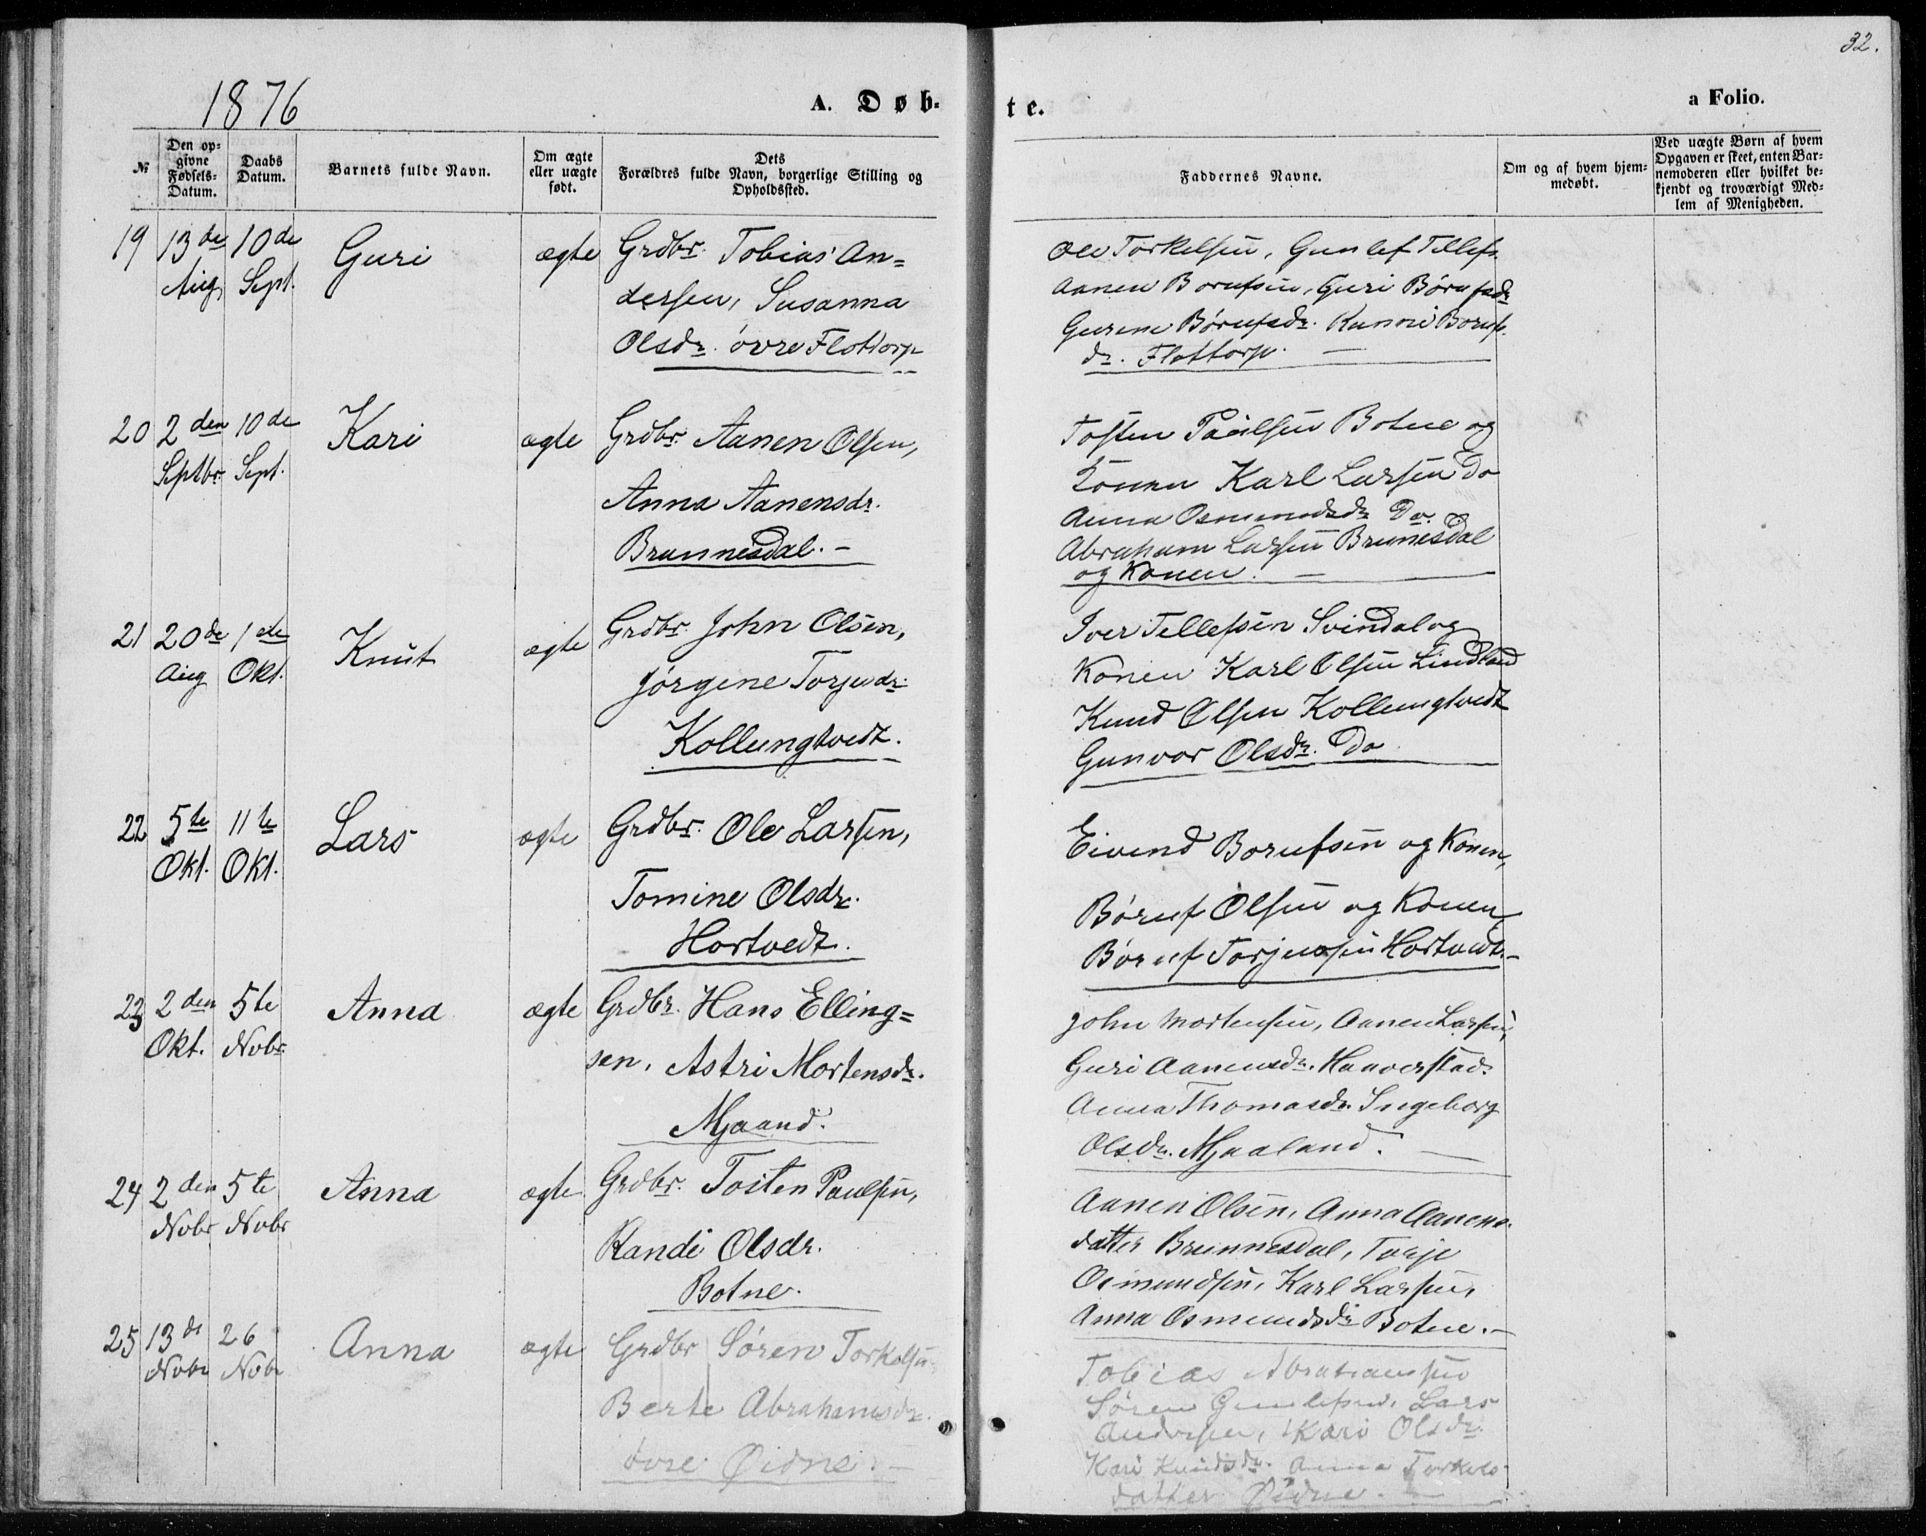 32.
1876
A. Døb-
te.
a Folio.
№
Den op-
givne
Fødsels-
Datum.
Daabs
Datum.
Barnets fulde Navn.
Om ægte
eller uægte
født.
Dets
Forældres fulde Navn, borgerlige Stilling og
Opholdssted.
Faddernes Navne.
Om og af hvem hjem-
medøbt.
Ved uægte Børn af hvem
Opgaven er skeet, enten Bar-
nemoderen eller hvilket be-
kjendt og troværdigt Med-
lem af Menigheden.
19 13de 10de Guri ægte Grdbr. Tobias An=
Aug. Sept. dersen, Susanna
Olsdr. øvre Flottorp
Ole Torkelsen, Gunlef Tellefs.
Aanen Borufsen, Guri Børufsdr
Gurine Børufsdr. Kunni Boruf.
dr. Flottorp.
20 2den 10de Kari ægte Grdbr. Aanen Olsen,
Septbr. Sept. Anna Aanensdr.
Brunnesdal. -
Tosten Paulsen Botne og
Konen Karl Larsen Do
Anna Osmundsdr Do.
Abraham Larsen Brunesdal
og Konen. -
21 20de 1ste Knut ægte Grdbr. John Olsen,
Aug Okt. Jørgine Torjusdr.
Kollungtvedt.
Iver Tellefsen Svindal og
Konen Karl Olsen Lindland
Knud Olsen Kollungtvedt
Gunvor Olsdr. Do
22 5te 11te Lars ægte Grdbr. Ole Larsen,
Okt. Okt. Tomine Olsdr.
Hortvedt.
Eivend Borufsen og Konen,
Børuf Olsen og Konen
Børuf Torjussen Hortvedt. -
23 2den 5te Anna ægte Grdbr. Hans Elling=
Okt. Nobr. sen, Astri Mortensdr.
Mjaand.
John Mortensen, Aanen Larsen,
Guri Aanensdr. Haaverstad.
Anna Thomasdr. Ingeborg
Olsdr. Mjaaland. -
24 2den 5te Anna ægte Grdbr. Tosten Paulsen,
Nobr Nobr Randi Olsdr.
Botne.
Aanen Olsen, Anna Aanens.
datter Brunnesdal, Torje
Osmundsen, Karl Larsen,
Anna Osmundsdr Botne. -
25 13de 26 Anna ægte Grdbr Søren Torkelsen
Nobr Nobr Berte Abrahamsdr.
øvre Øidne. -
Tobias Abrahamsen
Søren Gunlefsen, Lars
Andersen, Kari Olsdr.
Kari Knudsdr. Anna Torkels-
datter Øidne. -